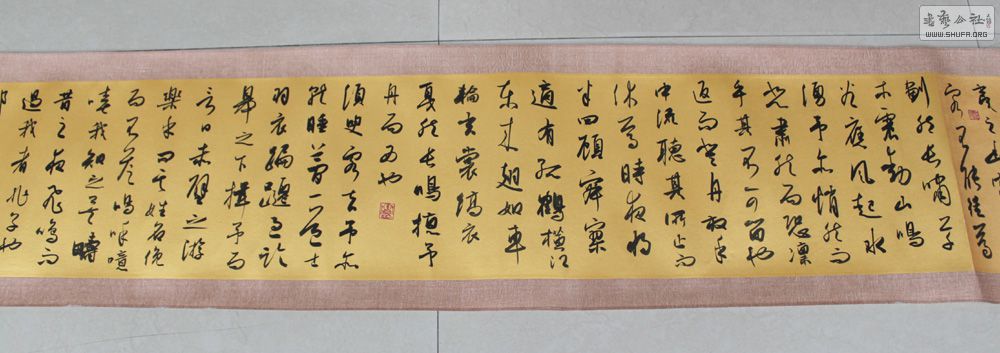 客不能從焉
劃然長嘯草
木震動山鳴
谷應風起水
湧予亦悄然而
悲肅然而恐凜
乎其不可留也
返而登舟放乎
中流聽其所止而
休焉時夜將
半四顧寂寥
適有孤鶴橫江
東來翅如車
輪玄裳縞衣
戛然長鳴掠予
舟而西也
須臾客去予亦
就睡夢一道士
羽衣蹁躚過臨
皋之下揖予而
言曰赤壁之游
樂乎問其姓名俛
而不答嗚呼噫
嘻我知之矣疇
昔之夜飛鳴而
過我者非子也
書藝公社
WWW.SHUFA.ORG